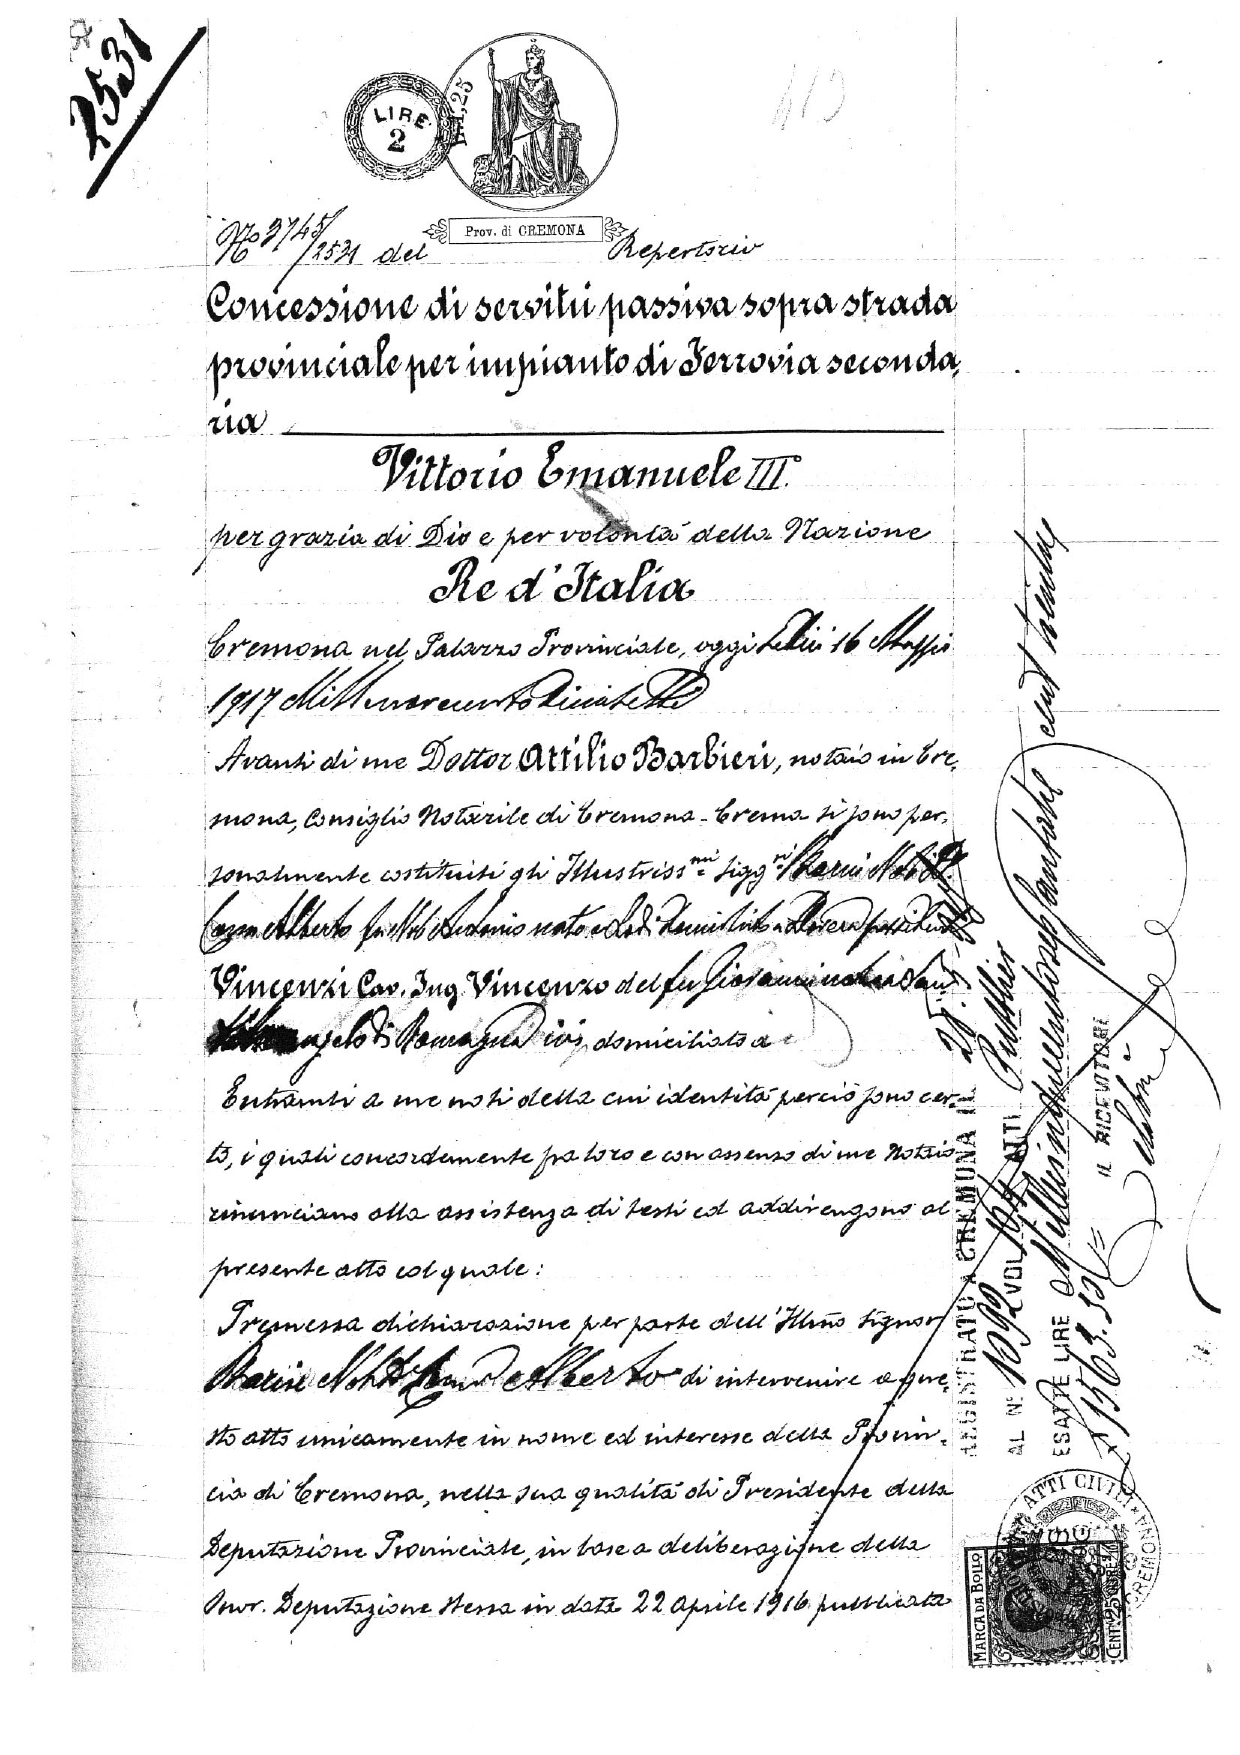 2531
LIRE
2
L.1,25
413
Prov. di CREMONA
No 3745/2531 del Repertorio
Concessione di servitù passiva sopra strada
provinciale per impianto di Ferrovia seconda,
ria
Vittorio Emanuele III.
per grazia di Dio e per volontà della Nazione
Re d'Italia
Cremona nel Palazzo Provinciale, oggi sedici 16 Maggio
1917 Millenovecentodiciasette
Avanti di me Dottor Attilio Barbieri, notaio in Cre,
mona, Consiglio Notarile di Cremona - Crema si sono per,
sonalmente costituiti gli Illustriss.mi sigg.ri Marini Nob. D.
Alberto fu Nob. Antonio nato e domiciliato a
Vincenzi Cav. Ing. Vincenzo del fu Giovanni nato a Sant
angelo di Romagna ivi domiciliato a
Entrambi a me noti della cui identità perciò sono cer,
to, i quali concordemente fra loro e con assenso di me Notaio
rinunciano alla assistenza di testi ed addivengono al
presente atto col quale:
Premessa dichiarazione per parte dell'Illmo Signor
Marini Nob. D. Alberto di intervenire a que,
sto atto unicamente in nome ed interesse della Provin,
cia di Cremona, nella sua qualità di Presidente della
Deputazione Provinciale, in base a deliberazione della
Onor. Deputazione stessa in data 22 aprile 1916 pubblicata
REGISTRATO A CREMONA IL 25
AL N. 1092 VOL. 104 ATTI Pubblici
ESATTE LIRE Millecinquecentosessantatre cent. trenta
£ 1563.30 =
IL RICEVITORE
ATTI CIVILI
CREMONA
MARCA DA BOLLO
CENT.